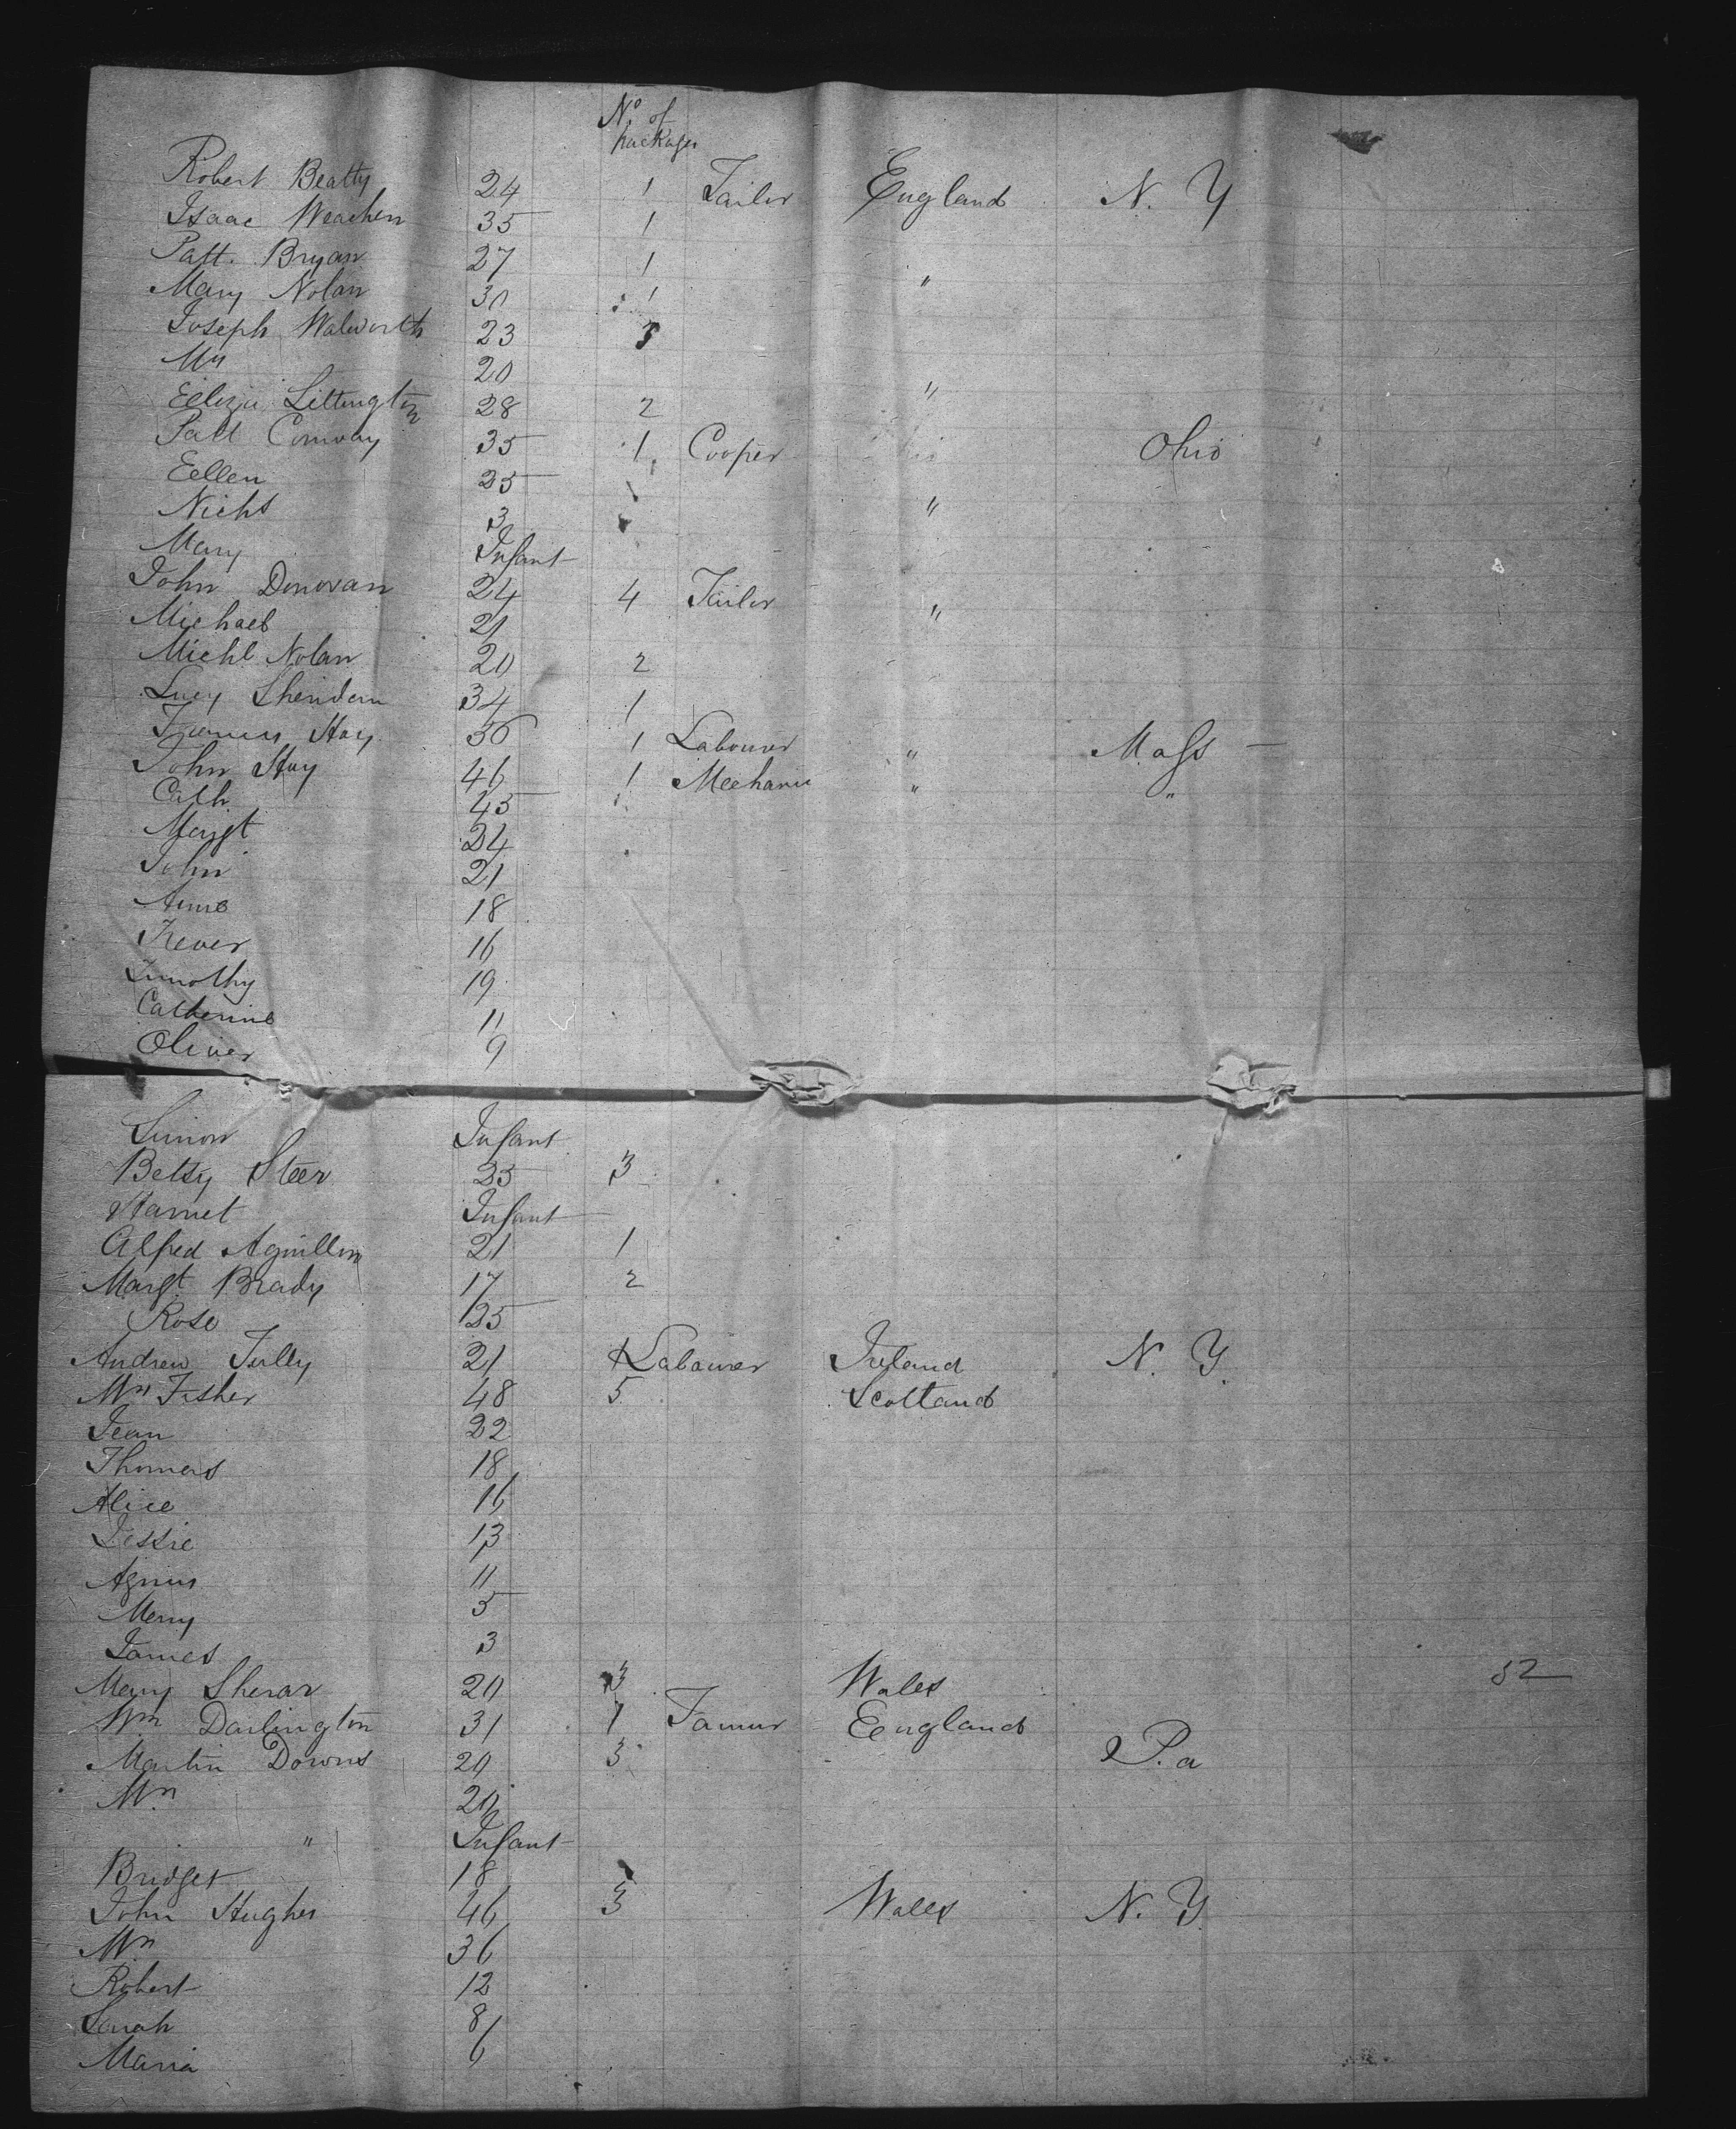 No of packages
Robert Beatty 24 1 Tailor England N. Y
Isaac Weachen 35 1
Patt. Bryan 27 1 "
Mary Nolan 30 1
Joseph Walworth 23
Mrs 20
Littington 28 2 "
Patt Conway 35 1 Cooper Ohio
Eellen 25
Nichs 3 "
Mary Infant
John Donovan 24 4 Tailor "
Michael 21
Michl Nolan 20 2
Lucy Sheridan 34 1
Hay 36 1 Labourer " Mass —
John Hay 46 1 Mechanic " "
Cath 45
Margt 24
John 21
Anne 18
16
Timothy 19
Catherine 11
Oliver 9
Simon Infant
Betsy Steer 25 3
Harriet Infant
Alfred 21 1
Margt. Brady 17 2
Rose 25
Andrew Tully 21 1 Labourer Ireland N. Y.
Mrs Fisher 48 5 Scotland
Jean 22
Thomas 18
Alice 16
Jessie 13
Agnes 11
Mary 5
James 3
Mary Sherar 20 3 Wales 52
Wm Darlington 31 1 Farmer Eengland
Martin Downs 20 3 P.a
Mrs 20
" Infant
Bridget 18
John Hughes 46 3 Wales N. Y
Mrs 36
Robert 12
Sarah 8
Maria 6